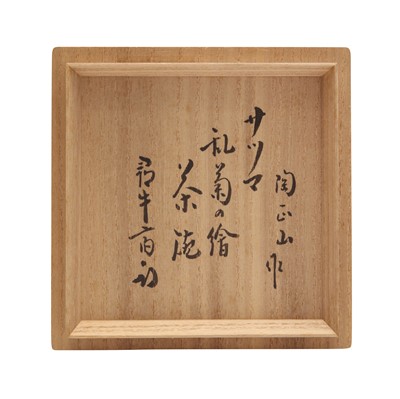 陶正山作
サツマ
乱菊の繪
茶碗
尋牛斎